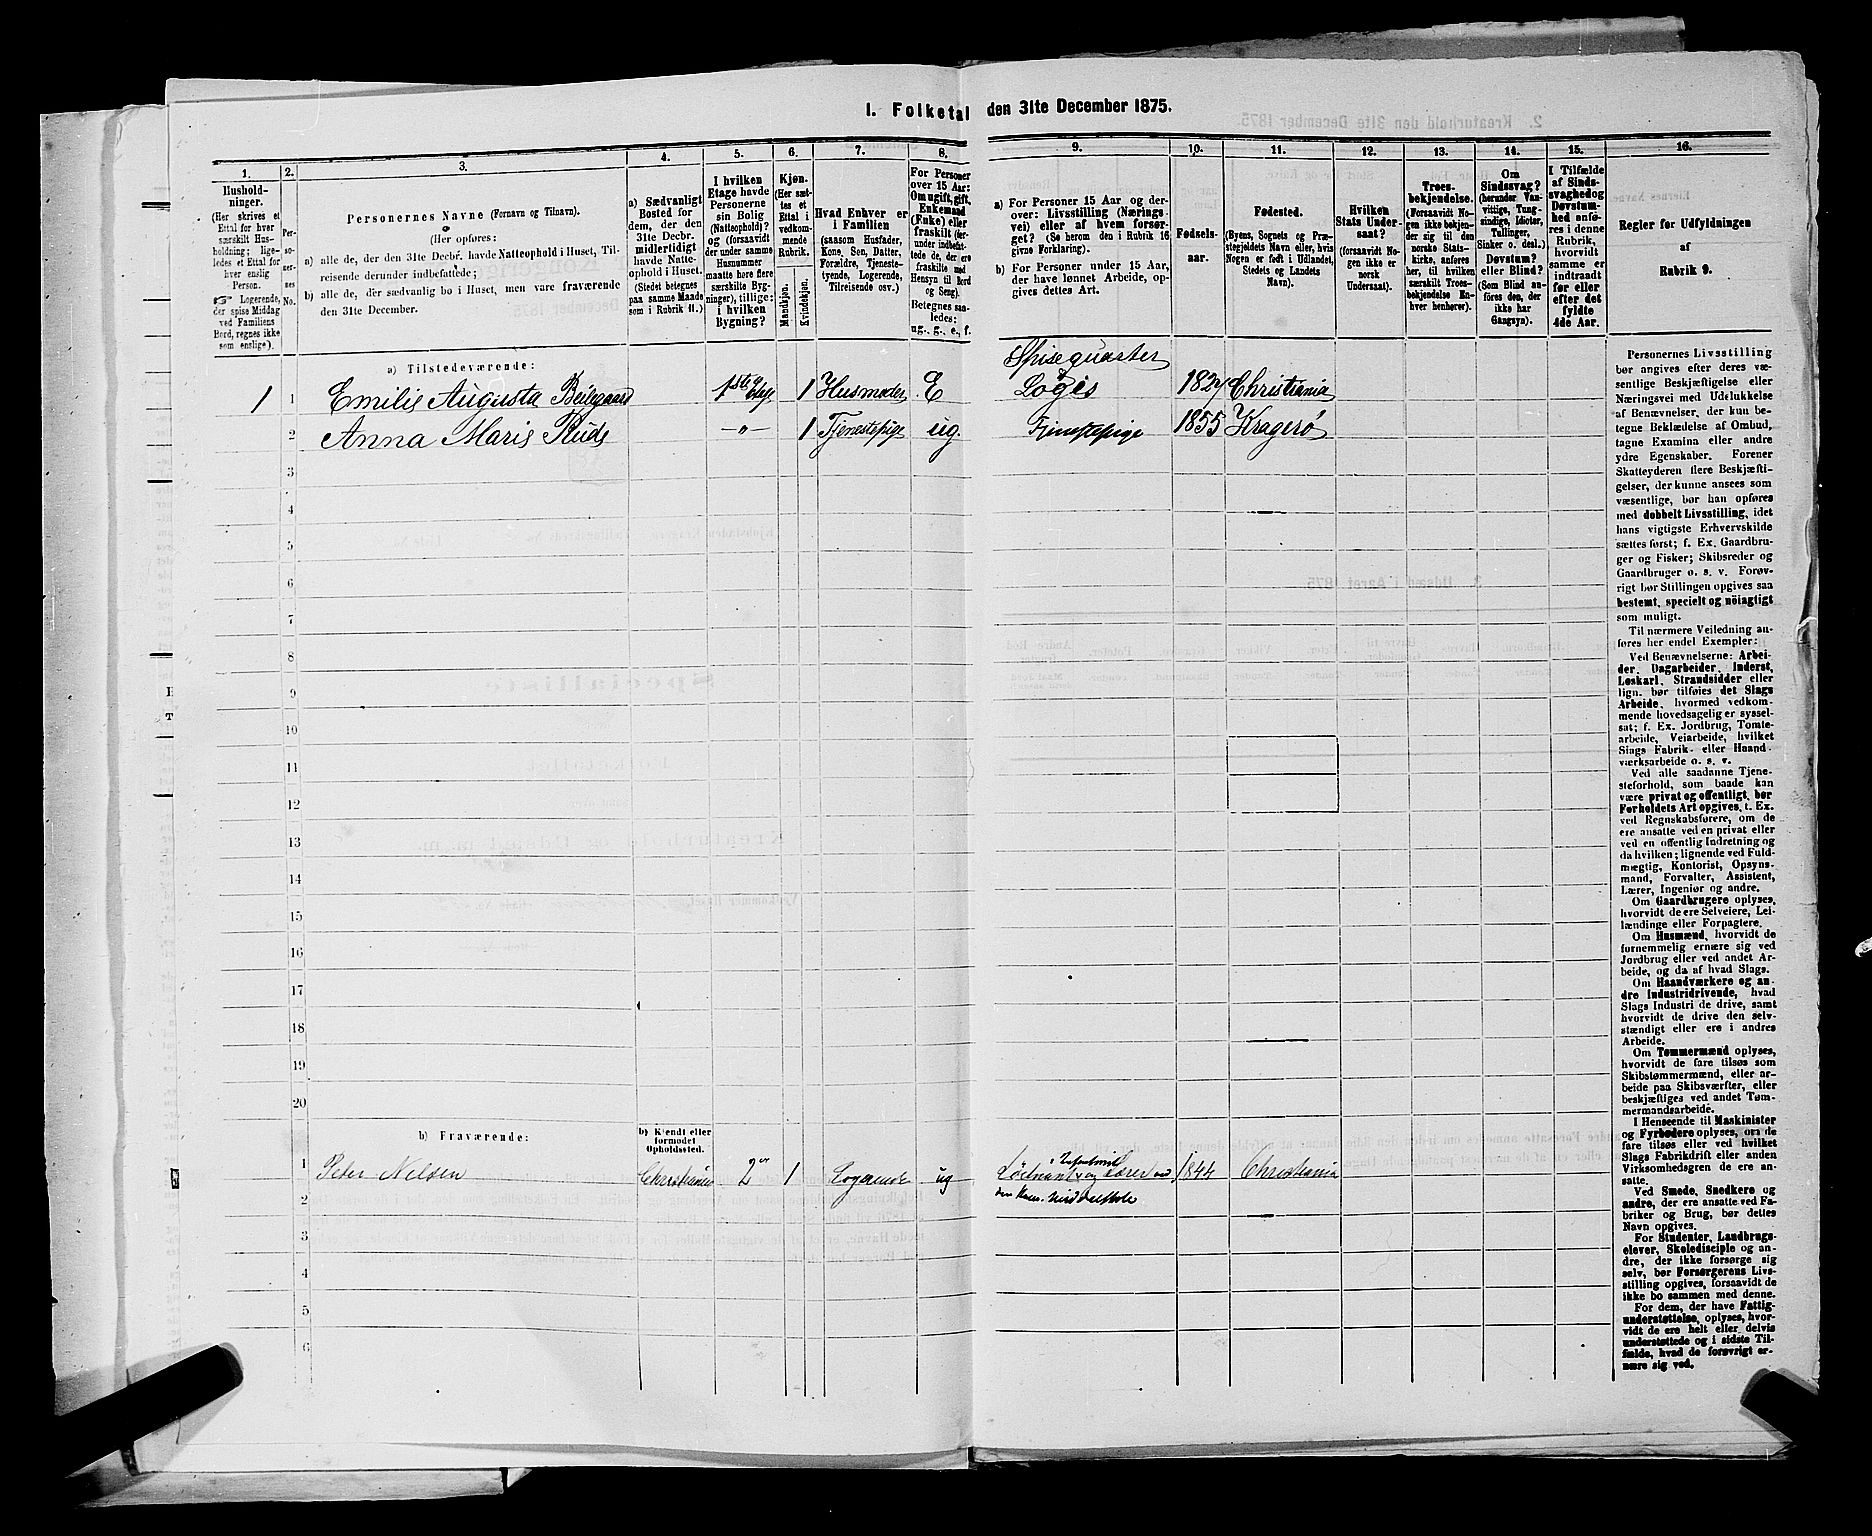 I. Folketal den 31te December 1875.
1. 2. 3. 4. 5. 6. 7. 8. 9. 10. 11. 12. 13. 14. 15. 16.
Hushold-
ninger.
(Her skrives et
Ettal for hver
særskilt Hus-
holdning; lige-
ledes et Ettal for
hver enslig
Person.
☞ Logerende,
der spise Middag
ved Familiens
Bord, regnes ikke
som enslige).
Per-
so-
ner-
nes
No.
Personernes Navne (Fornavn og Tilnavn).
(Her opføres:
a) alle de, der den 31te Decbr. havde Natteophold i Huset, Til-
reisende derunder indbefattede;
b) alle de, der sædvanlig bo i Huset, men vare fraværende
den 31te December.
a) Sædvanligt
Bosted for
dem, der den
31te Decbr.
midlertidigt
havde Natte-
ophold i Huset.
(Stedet betegnes
paa samme Maade
som i Rubrik 11.)
I hvilken
Etage havde
Personerne
sin Bolig
(Natteophold)?
og (forsaavidt
der under samme
Husnummer
maatte høre flere
særskilte Byg-
ninger), tillige:
i hvilken
Bygning?
Kjøn.
(Her sæt-
tes et
Ettal i
vedkom-
mende
Rubrik.
Mandkjøn.
Kvindekjøn.
Hvad Enhver er
i Familien
(saasom Husfader,
Kone, Søn, Datter,
Forældre, Tjeneste-
tyende, Logerende,
Tilreisende osv.)
For Personer
over 15 Aar:
Om ugift, gift,
Enkemand
(Enke) eller
fraskilt (her-
under indbefat-
tede de, der ere
fraskilte med
Hensyn til Bord
og Seng).
Betegnes saa-
ledes:
ug., g., e., f.
a) For Personer 15 Aar og der-
over: Livsstilling (Nærings-
vei) eller af hvem forsør-
get? (Se herom den i Rubrik 16
givne Forklaring).
b) For Personer under 15 Aar,
der have lønnet Arbeide, op-
gives dettes Art.
Fødsels-
aar.
Fødested.
(Byens, Sognets og Præ-
stegjeldets Navn eller, hvis
Nogen er født i Udlandet,
Stedets og Landets
Navn).
Hvilken
Stats Under-
saat?
(forsaavidt No-
gen ikke er
norsk
Undersaat).
Troes-
bekjendelse.
(Forsaavidt No-
gen ikke bekjen-
der sig til den
norske Stats-
kirke, anføres
her, til hvilken
særskilt Troes-
bekjendelse En-
hver henhører).
Om
Sindssvag?
(herunder Van-
vittige, Tung-
sindige, Idioter,
Sinker o. desl.)
Døvstum?
eller Blind?
(Som Blind an-
føres den, der
ikke har
Gangsyn).
I Tilfælde
af Sinds-
svaghed og
Døvstum-
hed anfø-
res i denne
Rubrik,
hvorvidt
samme er
indtraadt
før eller
efter det
fyldte
4de Aar.
Regler for Udfyldningen
af
Rubrik 9.
a) Tilstedeværende:
1 1 Emilie Augusta 1ste Etage 1 Husmoder E Spisequarter & Logis 1827 Christiania
2 Anna Marie Ruds -„- 1 Tjenestepige ug. Tjenestepige 1855 Kragerø
3
4
5
6
7
8
9
10
11
12
13
14
15
16
17
18
19
20
b) Fraværende:
b) Kjendt eller
formodet
Opholdssted.
1 Peter Nielsen Christiania 2den 1 Logerende ug Løitnant og Lærer ved 1844 Christiania
den Middelskole
2
3
4
5
6
Personernes Livsstilling
bør angives efter deres væ-
sentlige Beskjæftigelse eller
Næringsvei med Udelukkelse
af Benævnelser, der kun be-
tegne Beklædelse af Ombud,
tagne Examina eller andre
ydre Egenskaber. Forener
Skatteyderen flere Beskjæfti-
gelser, der kunne ansees som
væsentlige, bør han opføres
med dobbelt Livsstilling, idet
hans vigtigste Erhvervskilde
sættes først; f. Ex. Gaardbru-
ger og Fisker; Skibsreder og
Gaardbruger o. s. v. Forøv-
rigt bør Stillingen opgives saa
bestemt, specielt og nöiagtigt
som muligt.
Til nærmere Veiledning an-
føres her endel Exempler:
Ved Benævnelserne: Arbei-
der, Dagarbeider, Inderst,
Løskarl, Strandsidder eller
lign. bør tilføies det Slags
Arbeide, hvormed vedkom-
mende hovedsagelig er syssel-
sat; f. Ex. Jordbrug, Tomte-
arbeide, Veiarbeide, hvilket
Slags Fabrik- eller Haand-
værksarbeide o. s. v.
Ved alle saadanne Tjene-
steforhold, som baade kan
være privat og offentligt, bør
Forholdets Art opgives, t. Ex.
ved Regnskabsførere, om de
ere ansatte ved en privat eller
ved en offentlig Indretning og
da hvilken; lignende ved Fuld-
mægtig, Kontorist, Opsyns-
mand, Forvalter, Assistent,
Lærer, Ingeniør og andre.
Om Gaardbrugere oplyses,
hvorvidt de ere Selveiere, Lei-
lændinge eller Forpagtere.
Om Husmænd, hvorvidt de
fornemmelig ernære sig ved
Jordbrug eller ved andet Ar-
beide, og da af hvad Slags.
Om Haandværkere og an-
dre Industridrivende, hvad
Slags Industri de drive, samt
hvorvidt de drive den selv-
stændigt eller ere i andres
Arbeide.
Om Tømmermænd oplyses,
hvorvidt de fare tilsøs som
Skibstømmermænd, eller ar-
beide paa Skibsværfter, eller
beskjæftiges ved andet Tøm-
mermandsarbeide.
I Henseende til Maskinister
og Fyrbødere oplyses, om de
fare tilsøs eller ved hvilket
Slags Fabrikdrift eller anden
Virksomhedsgren de ere an-
satte.
Ved Smede, Snedkere og
andre, der ere ansatte ved Fa-
briker og Brug, bør dettes
Navn opgives.
For Studenter, Landbrugs-
elever, Skoledisciple og an-
dre, der ikke forsørge sig
selv, bør Forsørgerens Livs-
stilling opgives, forsaavidt de
ikke bo sammen med denne.
For dem, der have Fattig-
understøttelse, oplyses, hvor-
vidt de ere helt eller delvis
understøttede og i sidste Til-
fælde, hvad de forøvrigt er-
nære sig ved.